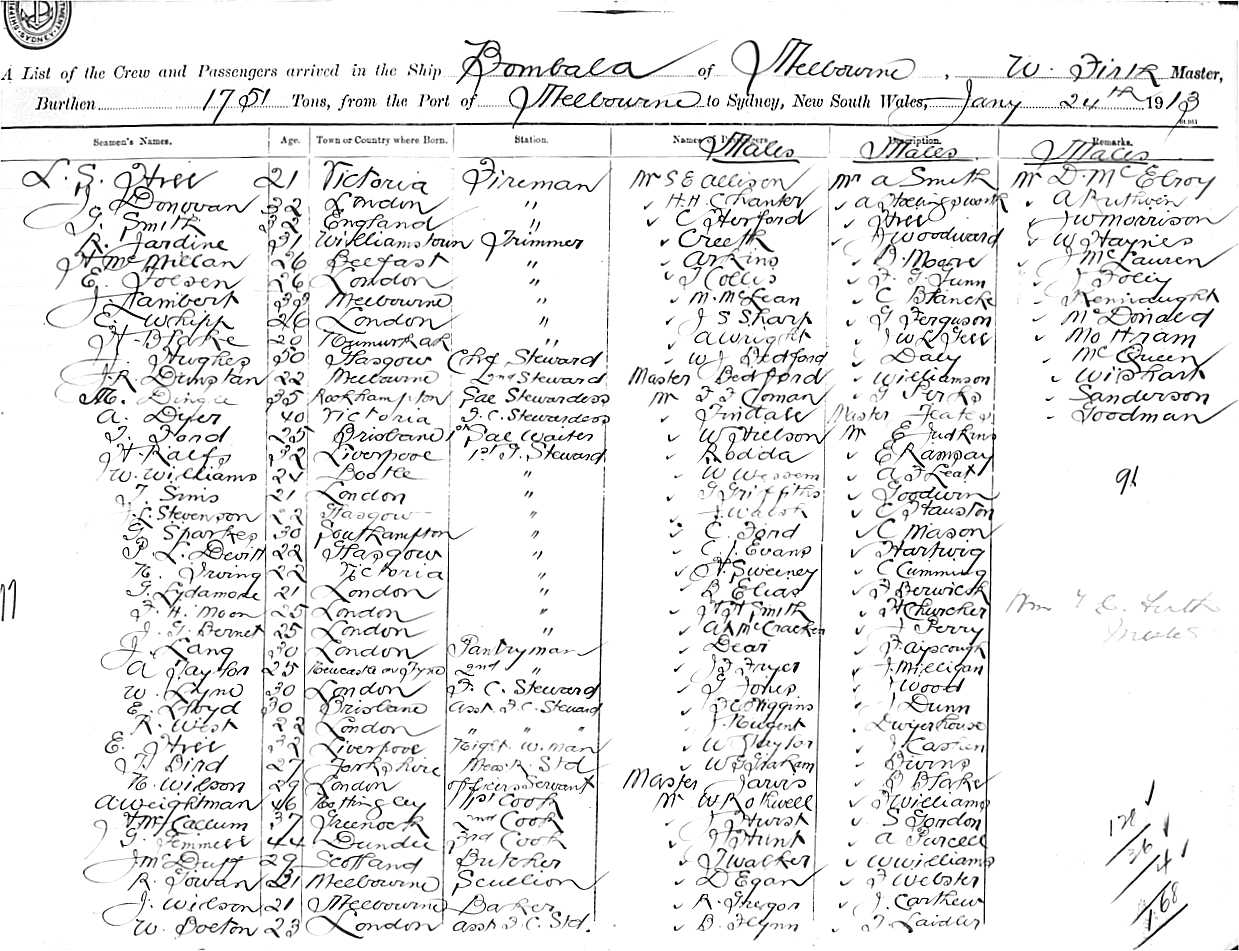 A List of the Crew and Passengers arrived in the Ship Bombala of Melbourne, W. Firth Master,
Burthen 1751 Tons, from the Port of Melbourne to Sydney, New South Wales, Jany 24th 1913
Seamen's Names. Age. Town or Country where Born. Station. Names of Passengers. Description. Remarks.
Males Males Males
L. S. 21 Victoria Fireman Mr S E Allison Mr A Smith Mr D. McElroy
Donovan 32 London " H. H. Chanter A A Ruthven
Smith England " C Herford J W Morrison
R. Jardine 31 Williamstown Trimmer Creeth J Woodward W Haynes
H McMillan 26 Belfast " Arkins D. Moore J McLauren
E. 26 London " T Collis F. G. Gunn J Folly
J. Lambert Melbourne " M. McLean C Blancke
E. Whipp 26 London " J S Sharp G Ferguson McDonald
H Blake 20 " A Wright J W L Mottram
J. Hughes 50 Glasgow Chf Steward W J Bedford Daly McQueen
J. R. Dunstan 22 Melbourne 2nd Steward Master Bedford Williamson Wishart
M. Dingle 35 Rockhampton Sae Stewardess Mr F Coman Sanderson
A. Dyer 40 Victoria F. C. Stewardess Tindall Master Goodman
T. Ford 25 Brisbane 1st Sae Waiter W Mr E Judkins
H Ralfs 32 Liverpool 1st F. Steward Rodda E Ramsay
W. Williams 21 Bootle " W
T. Sims 21 London " G Griffiths Goodwin 91
J. L. Stevenson 22 Glasgow " J Walsh C Hauston
G. Sparkes 30 Southampton " C. Ford C Mason
L. Devitt 22 Glasgow " C. J. Evans Hartwig
N. Irving 22 Victoria " H Sweeney C Cumming
G. Lydamore 21 London " B Elias F Berwick
F. H. Moon 25 London " H Smith H Churcher
J. G. Bernet 25 London " A McCracken J Perry
J. Lang 30 London Pantryman Dear F Ayscough
A Taylor 25 Newcastle on Tyne 2nd " J F Fryer J Milligan
W. Lyne 30 London F. C. Steward G Jones J Wood
E. Lloyd 30 Brisbane Asst F. C. Steward Higgins J Dunn
R. West 22 London " " J. Nugent Dwyerhouse
E. 32 Liverpool Night W. man W Taylor
T. Bird 27 Yorkshire Mess R. Std W Graham Burns
N. Wilson 29 London Officers Servant Master Jarvis B Blake
A Weightman 46 1st Cook Mr W Rothwell F Williams
H McCallum 37 Greenock 2nd Cook J Hurst S Gordon
G. Gemmell 44 Dundee 3rd Cook J Hunt A Purcell
J McDuff 29 Scotland Butcher J Walker W Williams
R. Gowan 21 Melbourne Scullion D Egan F Webster
J. Wilson 21 Melbourne Baker R. Gregor J. Carthew
W. Bolton 23 London Asst F. C. Std. B. Flynn T Laidler